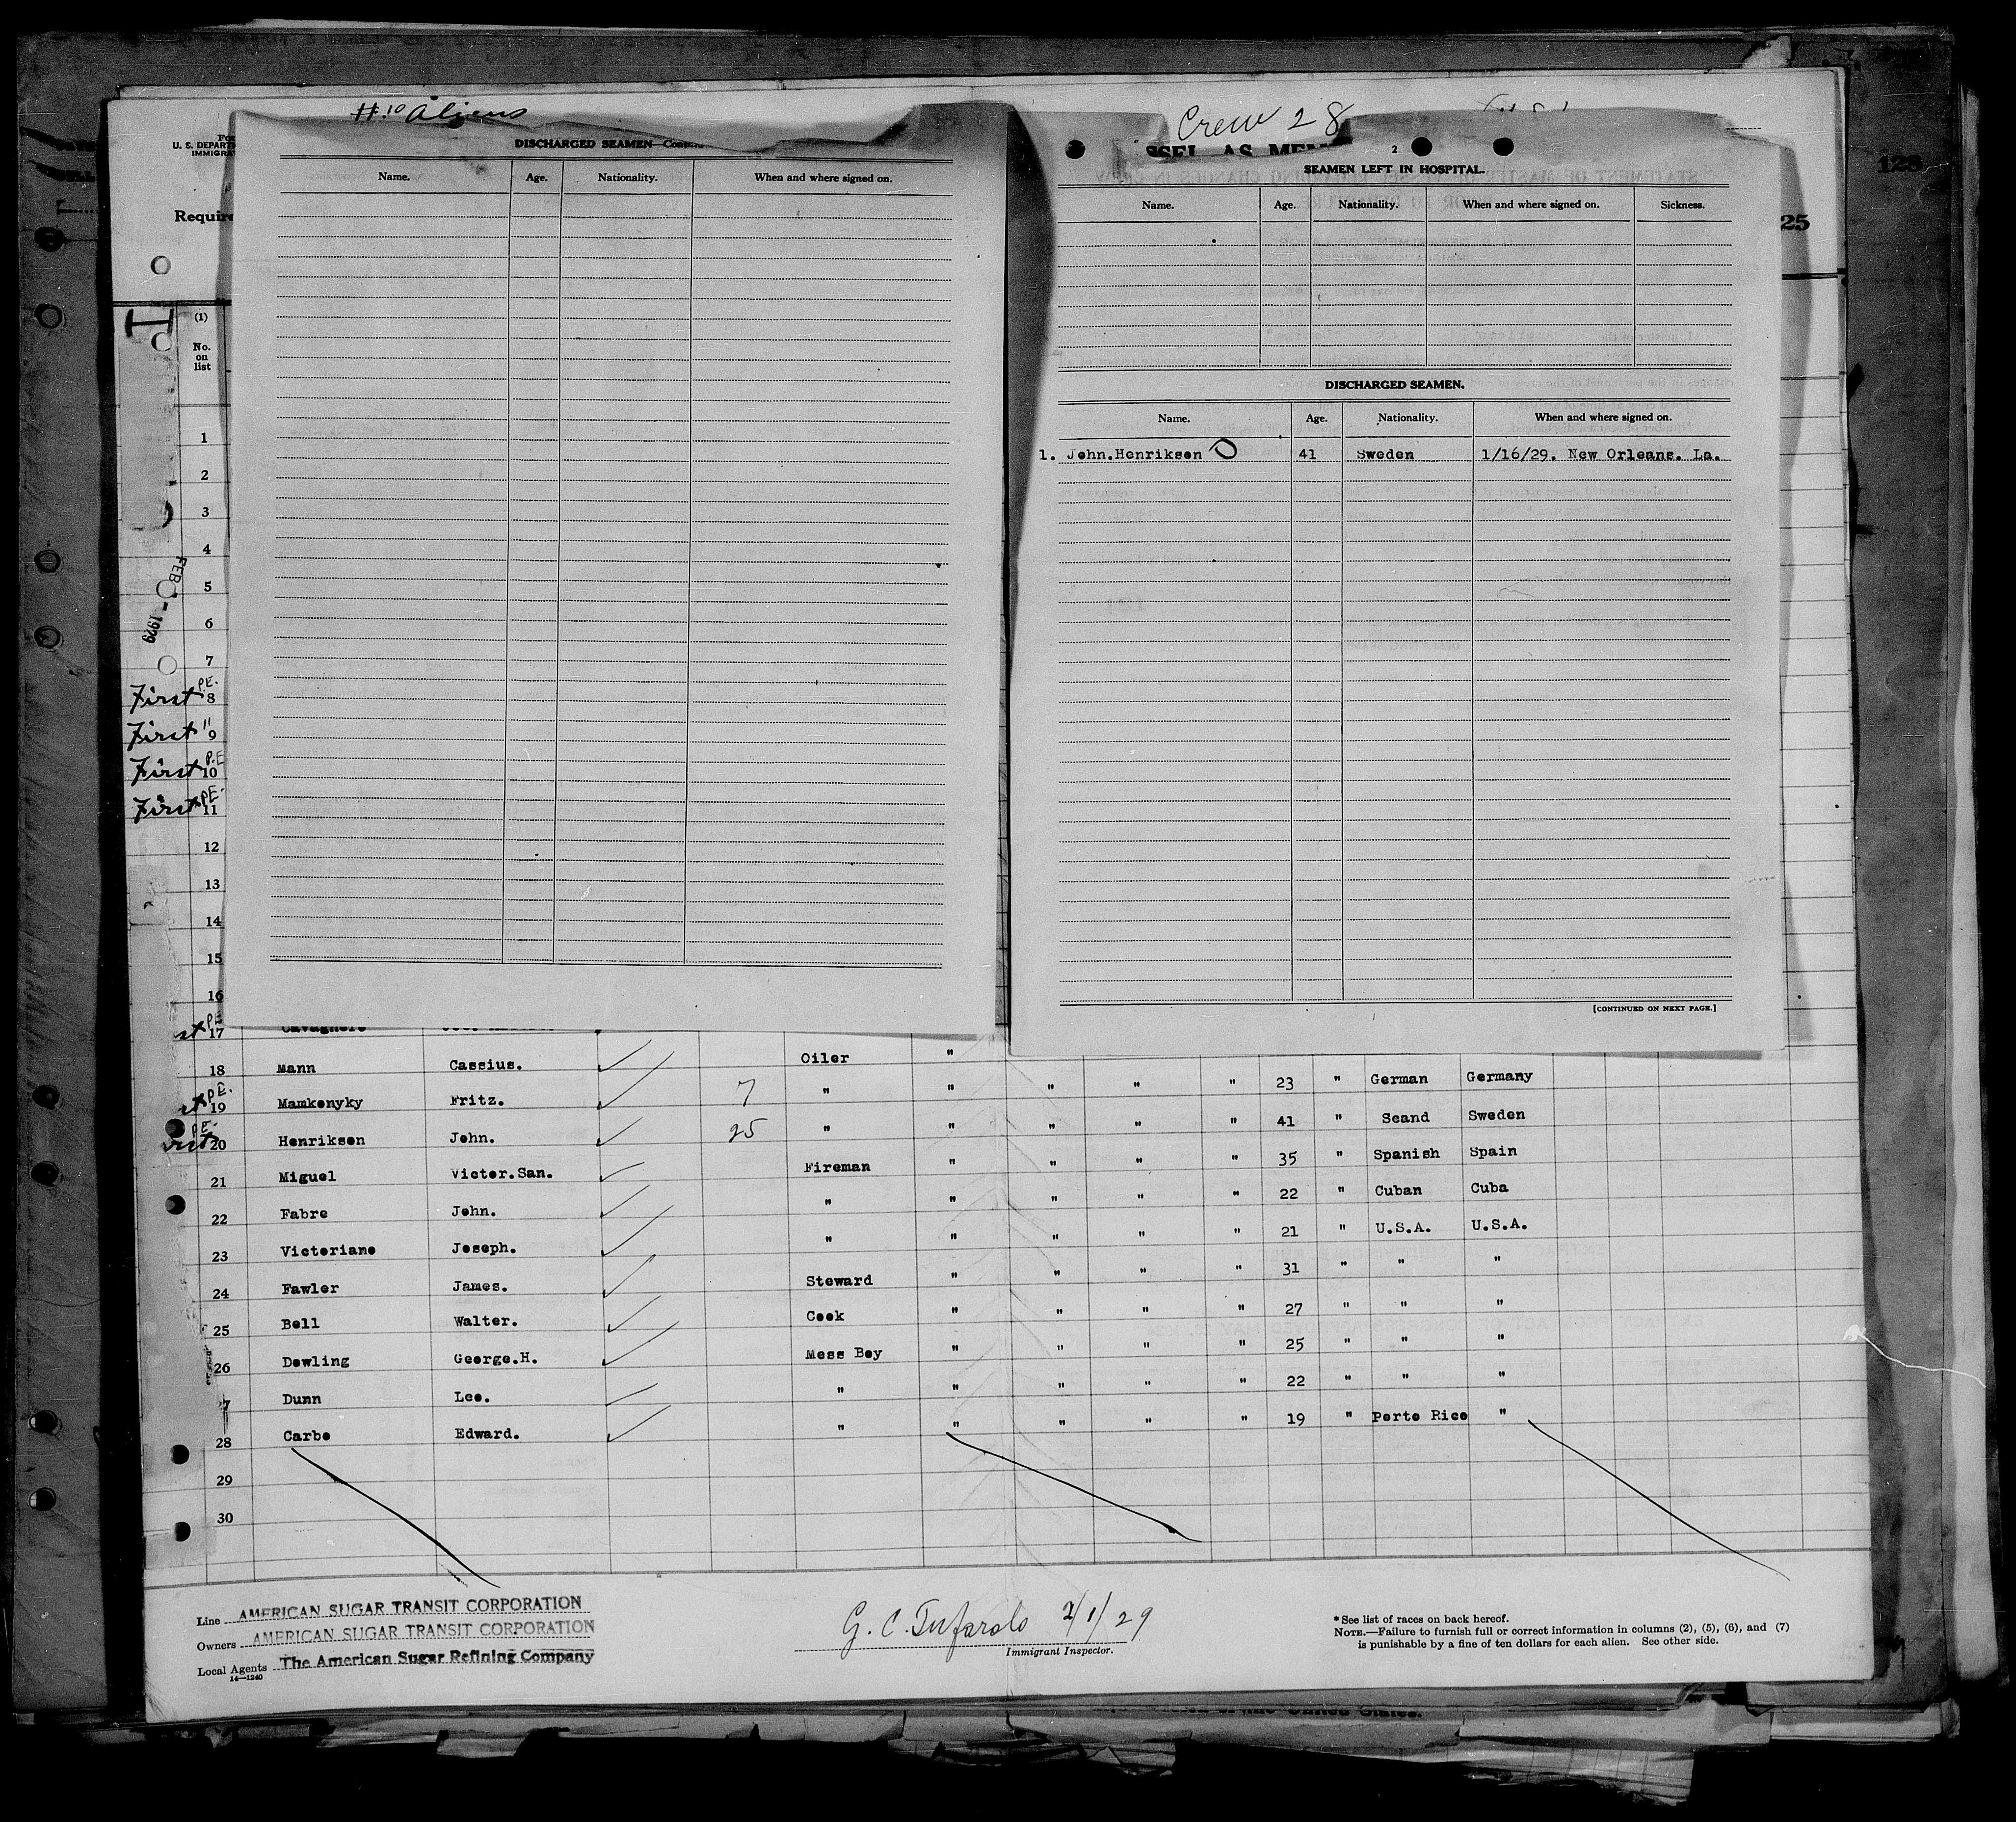 Aliens
Crew 28
U. S. DEPART
IMMIGRA
Require
25
128
DISCHARGED SEAMEN
Name. Age. Nationality. When and where signed on.
2
SEAMEN LEFT IN HOSPITAL.
Name. Age. Nationality. When and where signed on. Sickness.
DISCHARGED SEAMEN.
Name. Age. Nationality. When and where signed on.
1. John.Henrikson 41 Sweden 1/16/29. New Orleans. La.
[CONTINUED ON NEXT PAGE.]
(1)
No.
on
list
1
2
3
4
FEB - 1929
5
6
7
First P.E. 8
First " 9
First P.E 10
First P.E. 11
12
13
14
15
16
st P.E 17
18 Mann Cassius. Oiler "
st P.E. 19 Mamkonyky Fritz. 7 " " " " " 23 " German Germany
P.E. 20 Henrikson John. 25 " " " " " 41 " Scand Sweden
21 Miguel Victor.San. Fireman " " " " 35 " Spanish Spain
22 Fabre John. " " " " " 22 " Cuban Cuba
23 Victoriano Joseph. " " " " " 21 " U.S.A. U.S.A.
24 Fawler James. Steward " " " " 31 " " "
25 Bell Walter. Cook " " " " 27 " " "
26 Dowling George.H. Mess Boy " " " " 25 " " "
7 Dunn Leo. " " " " " 22 " " "
28 Carbo Edward. " " " " " 19 " Porto Rico "
29
30
Line AMERICAN SUGAR TRANSIT CORPORATION
Owners AMERICAN SUGAR TRANSIT CORPORATION
Local Agents The American Sugar Refining Company
14—1240
G. C. Tufarolo 2/1/29
Immigrant Inspector.
* See list of races on back hereof.
NOTE.—Failure to furnish full or correct information in columns (2), (5), (6), and (7)
is punishable by a fine of ten dollars for each alien. See other side.